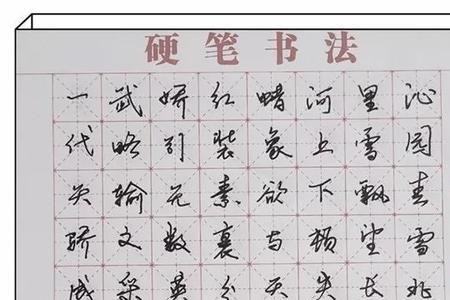 硬笔书法
沁园春雪北
里雪飘望长
河上下顿失
蜡象欲与天
红装素裹分
娇引无数英
武略输文采
一代天骄成